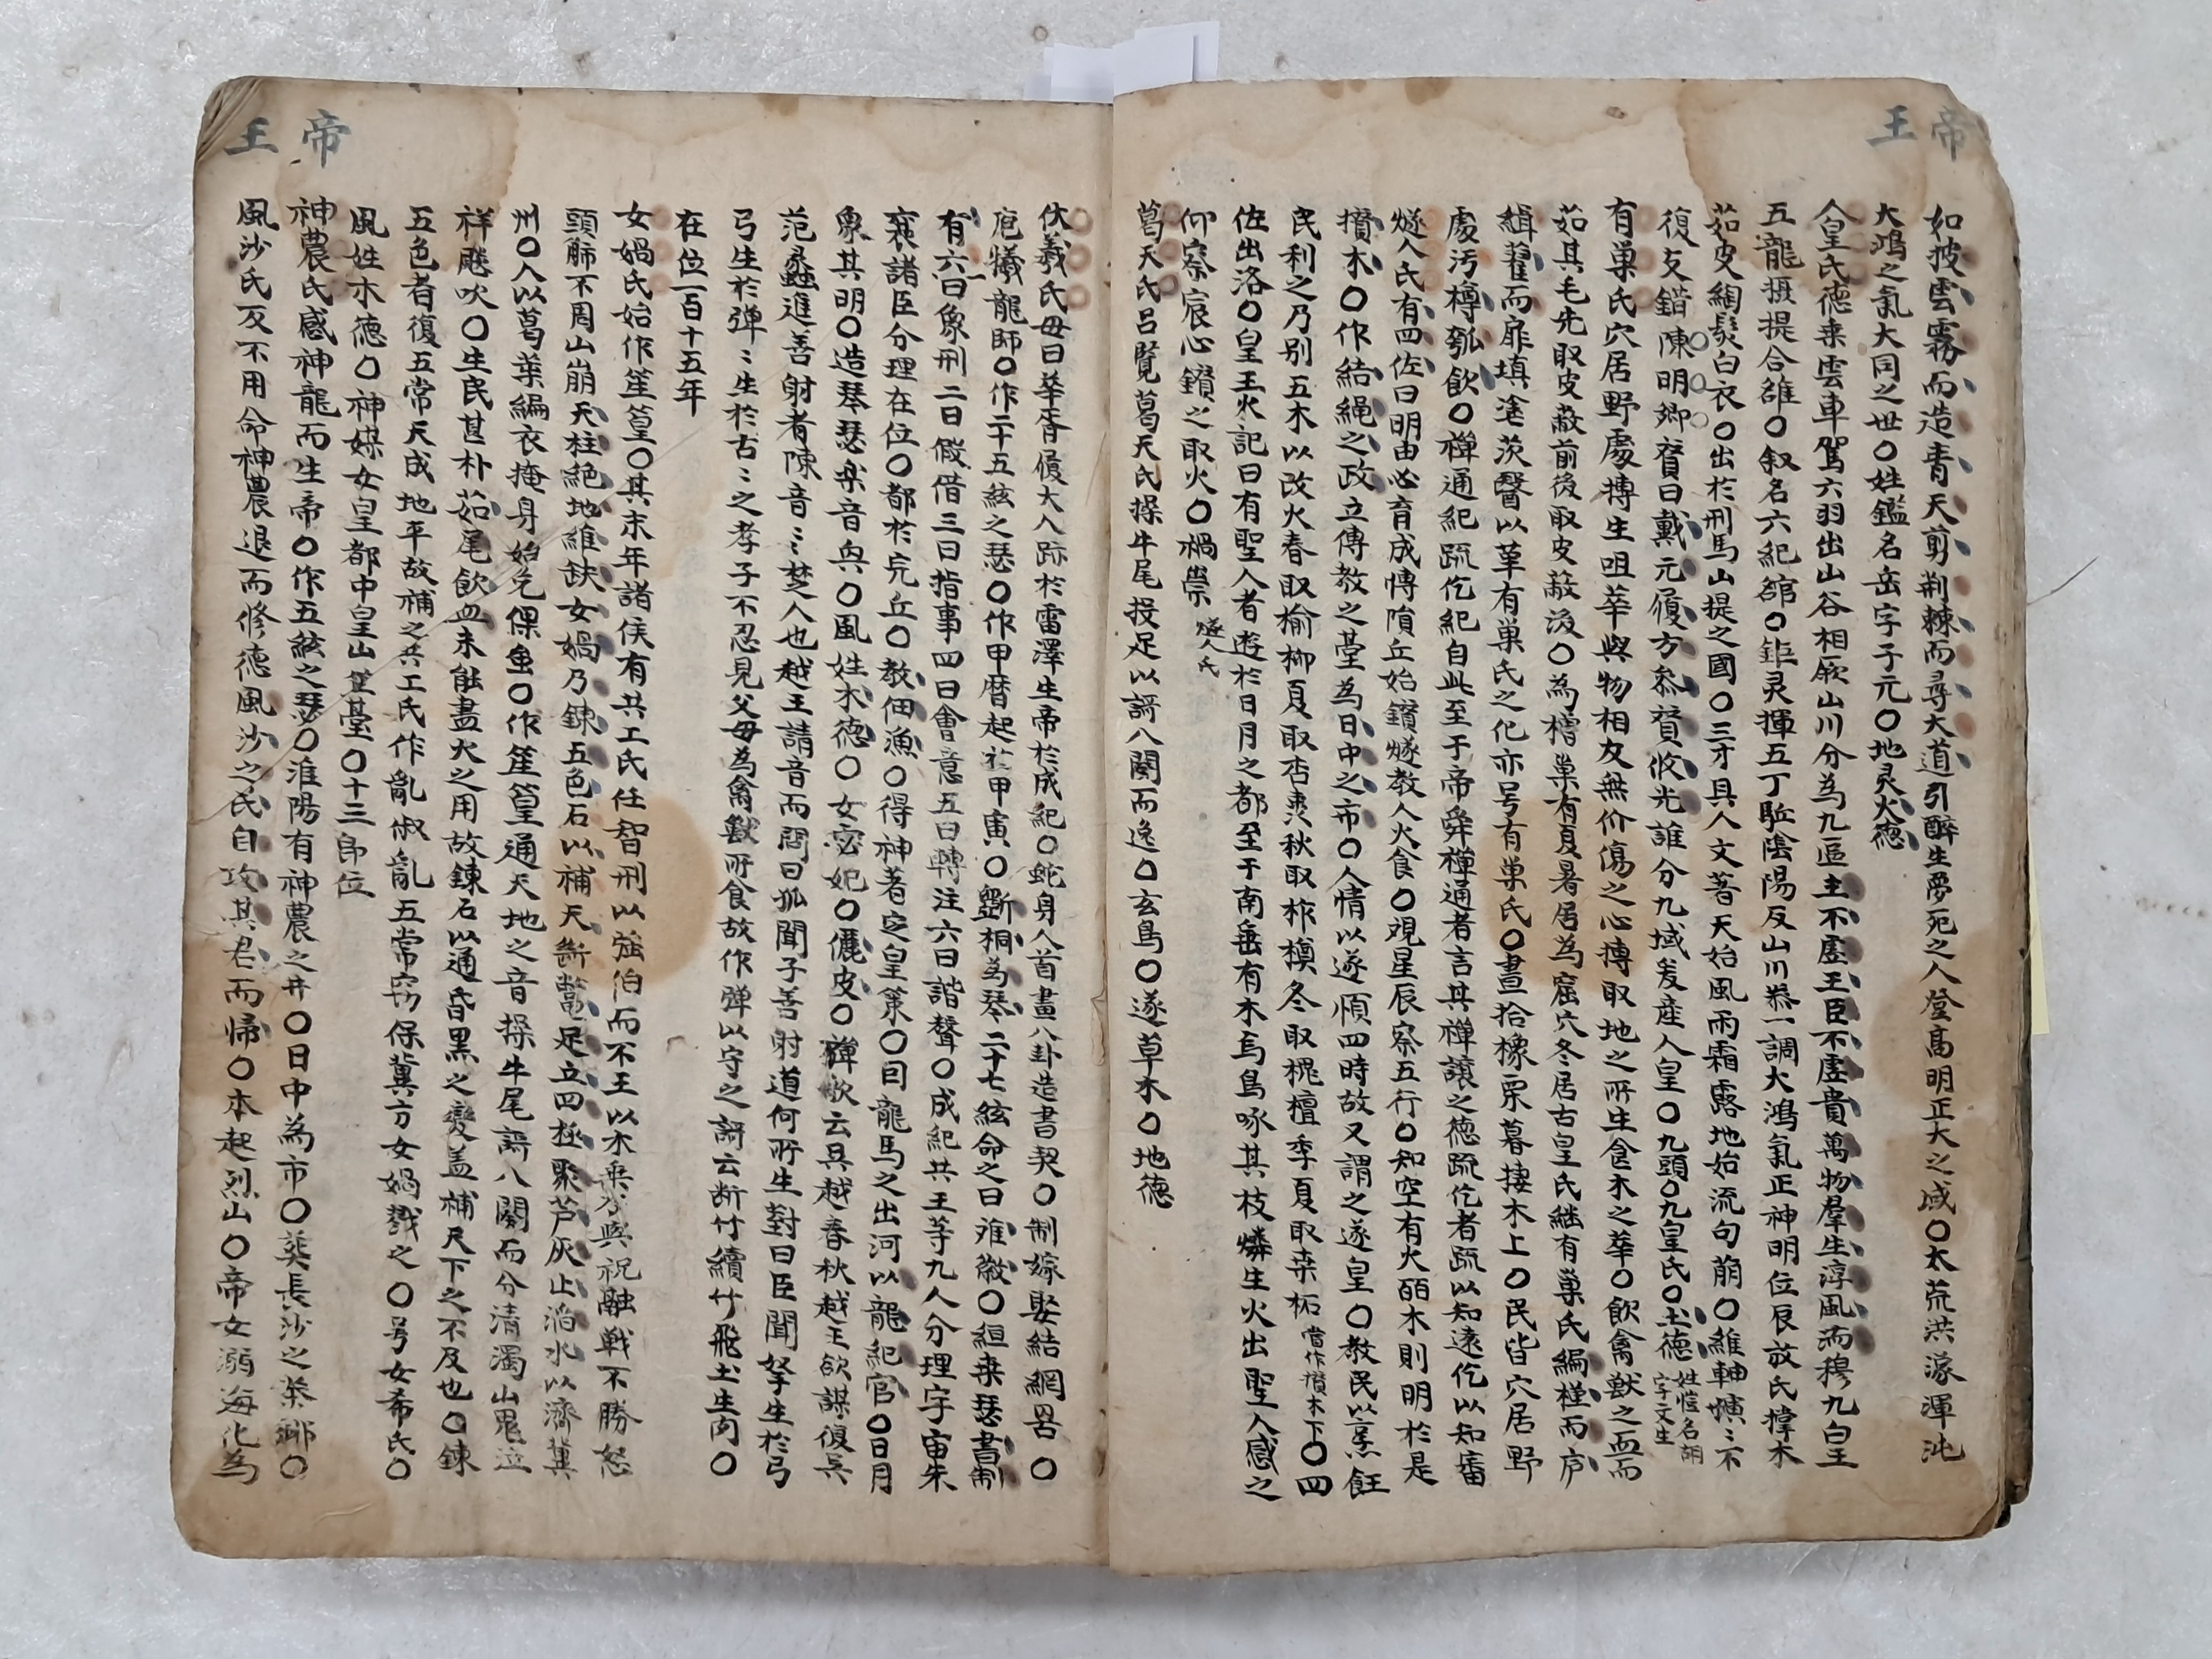 帝王
如披雲霧而造青天剪荆棘而尋大道引醉生夢死之人登高明正大之域〇太荒洪濛渾沌
大鴻之氣大同之世〇姓鑑名岳字子元〇地灵火德
人皇氏德乘雲車駕六羽出山谷相厥山川分為九區主不虛王臣不虛貴萬物羣生淳風而穆九白王
五龍摄提合雒〇叙名六紀〇鉅灵揮五丁駈陰陽反山川恭一調大鴻氣正神明位辰放氏撑木
茹皮綯髮白衣〇出於刑馬山提之國〇三才具人文著天始風雨霜露地始流句萠〇維軸〻不
復攴錯陳明卿賛曰戴元履方叅賛攸光誰分九域爰産人皇〇九頭〇九皇氏〇土德姓愷名胡字文生
有巢氏穴居野處搏生咀華與物相友無价傷之心搏取地之所生食木之華〇飲禽獸之血而
茹其毛先取皮蔽前後取皮蔽後〇為橧巢有夏暑居為窟穴冬居古皇氏継有巢氏編槿而庐
緝藋而扉填塗茨翳以革有巢氏之化亦号有巢氏〇晝拾橡栗暮捿木上〇民皆穴居野
處汚樽瓠飲〇禪通紀疏仡紀自此至于帝舜禪通者言其禪讓之德疏仡者疏以知遠仡以知審
燧人氏有四佐曰明由必育成愽隕丘始鑚燧教人火食〇观星辰察五行〇知空有火丽木則明於是
攅木〇作結繩之政立傳教之臺為日中之市〇人情以遂順四時故又謂之遂皇〇教民以烹飪
民利之乃别五木以改火春取榆柳夏取杏棗秋取柞樌冬取槐檀季夏取桒柘當作攅木下〇四
佐出洛〇皇王火記曰有聖人者遊於日月之都至于南垂有木焉鳥啄其枝燐生火出聖人感之
仰察宸心鑚之取火〇禍祟燧人氏
葛天氏呂覽葛天氏操牛尾投足以謌八闋而逸〇玄鳥〇遂草木〇地德
帝王
伏羲氏母曰華胥履大人跡於雷澤生帝於成紀〇蛇身人首畫八卦造書契〇制嫁娶結網罟〇
庖犧龍師〇作二十五絃之瑟〇作甲曆起於甲寅〇斲桐為琴二十七絃命之曰离徽〇絙桒瑟書制
有六曰象刑二曰假借三曰指事四曰會意五曰轉注六曰諧聲〇成紀共王等九人分理宇宙朱
襄諸臣分理在位〇都於完丘〇教佃漁〇得神蓍定皇策〇因龍馬之出河以龍紀官〇日月
象其明〇造琴瑟楽音與〇風姓木德〇女宓妃〇儷皮〇禪歌云吳越春秋越王欲謀復吳
范蠡進善射者陳音〻楚人也越王請音而問曰孤聞子善射道何所生對曰臣聞弩生於弓
弓生於彈〻生於古〻之孝子不忍見父母為禽獸所食故作弹以守之謌云断竹續竹飛土生肉〇
在位一百十五年
女媧氏始作笙篁〇其末年諸侯有共工氏任智刑以強伯而不王以水乗木與祝融戦不勝怒
頭觸不周山崩天柱絶地維缺女媧乃鍊五色石以補天断鼇足立四極聚芦灰止滔水以濟冀
州〇人以葛葉編衣掩身始免倮虫〇作笙篁通天地之音操牛尾謌八闋而分清濁山鬼泣
祥飈吹〇生民甚朴茹尾飲血未能盡火之用故鍊石以通昏黑之變盖補天下之不及也〇鍊
五色者復五常天成地平故補之共工氏作亂俶亂五常竊保冀方女媧戮之〇号女希氏〇
風姓木德〇神媒女皇都中皇山望臺〇十三即位
神農氏感神龍而生帝〇作五絃之瑟〇淮陽有神農之井〇日中為市〇葬長沙之茶鄉〇
風沙氏反不用命神農退而修德風沙之民自攻其君而帰〇本起烈山〇帝女溺海化為